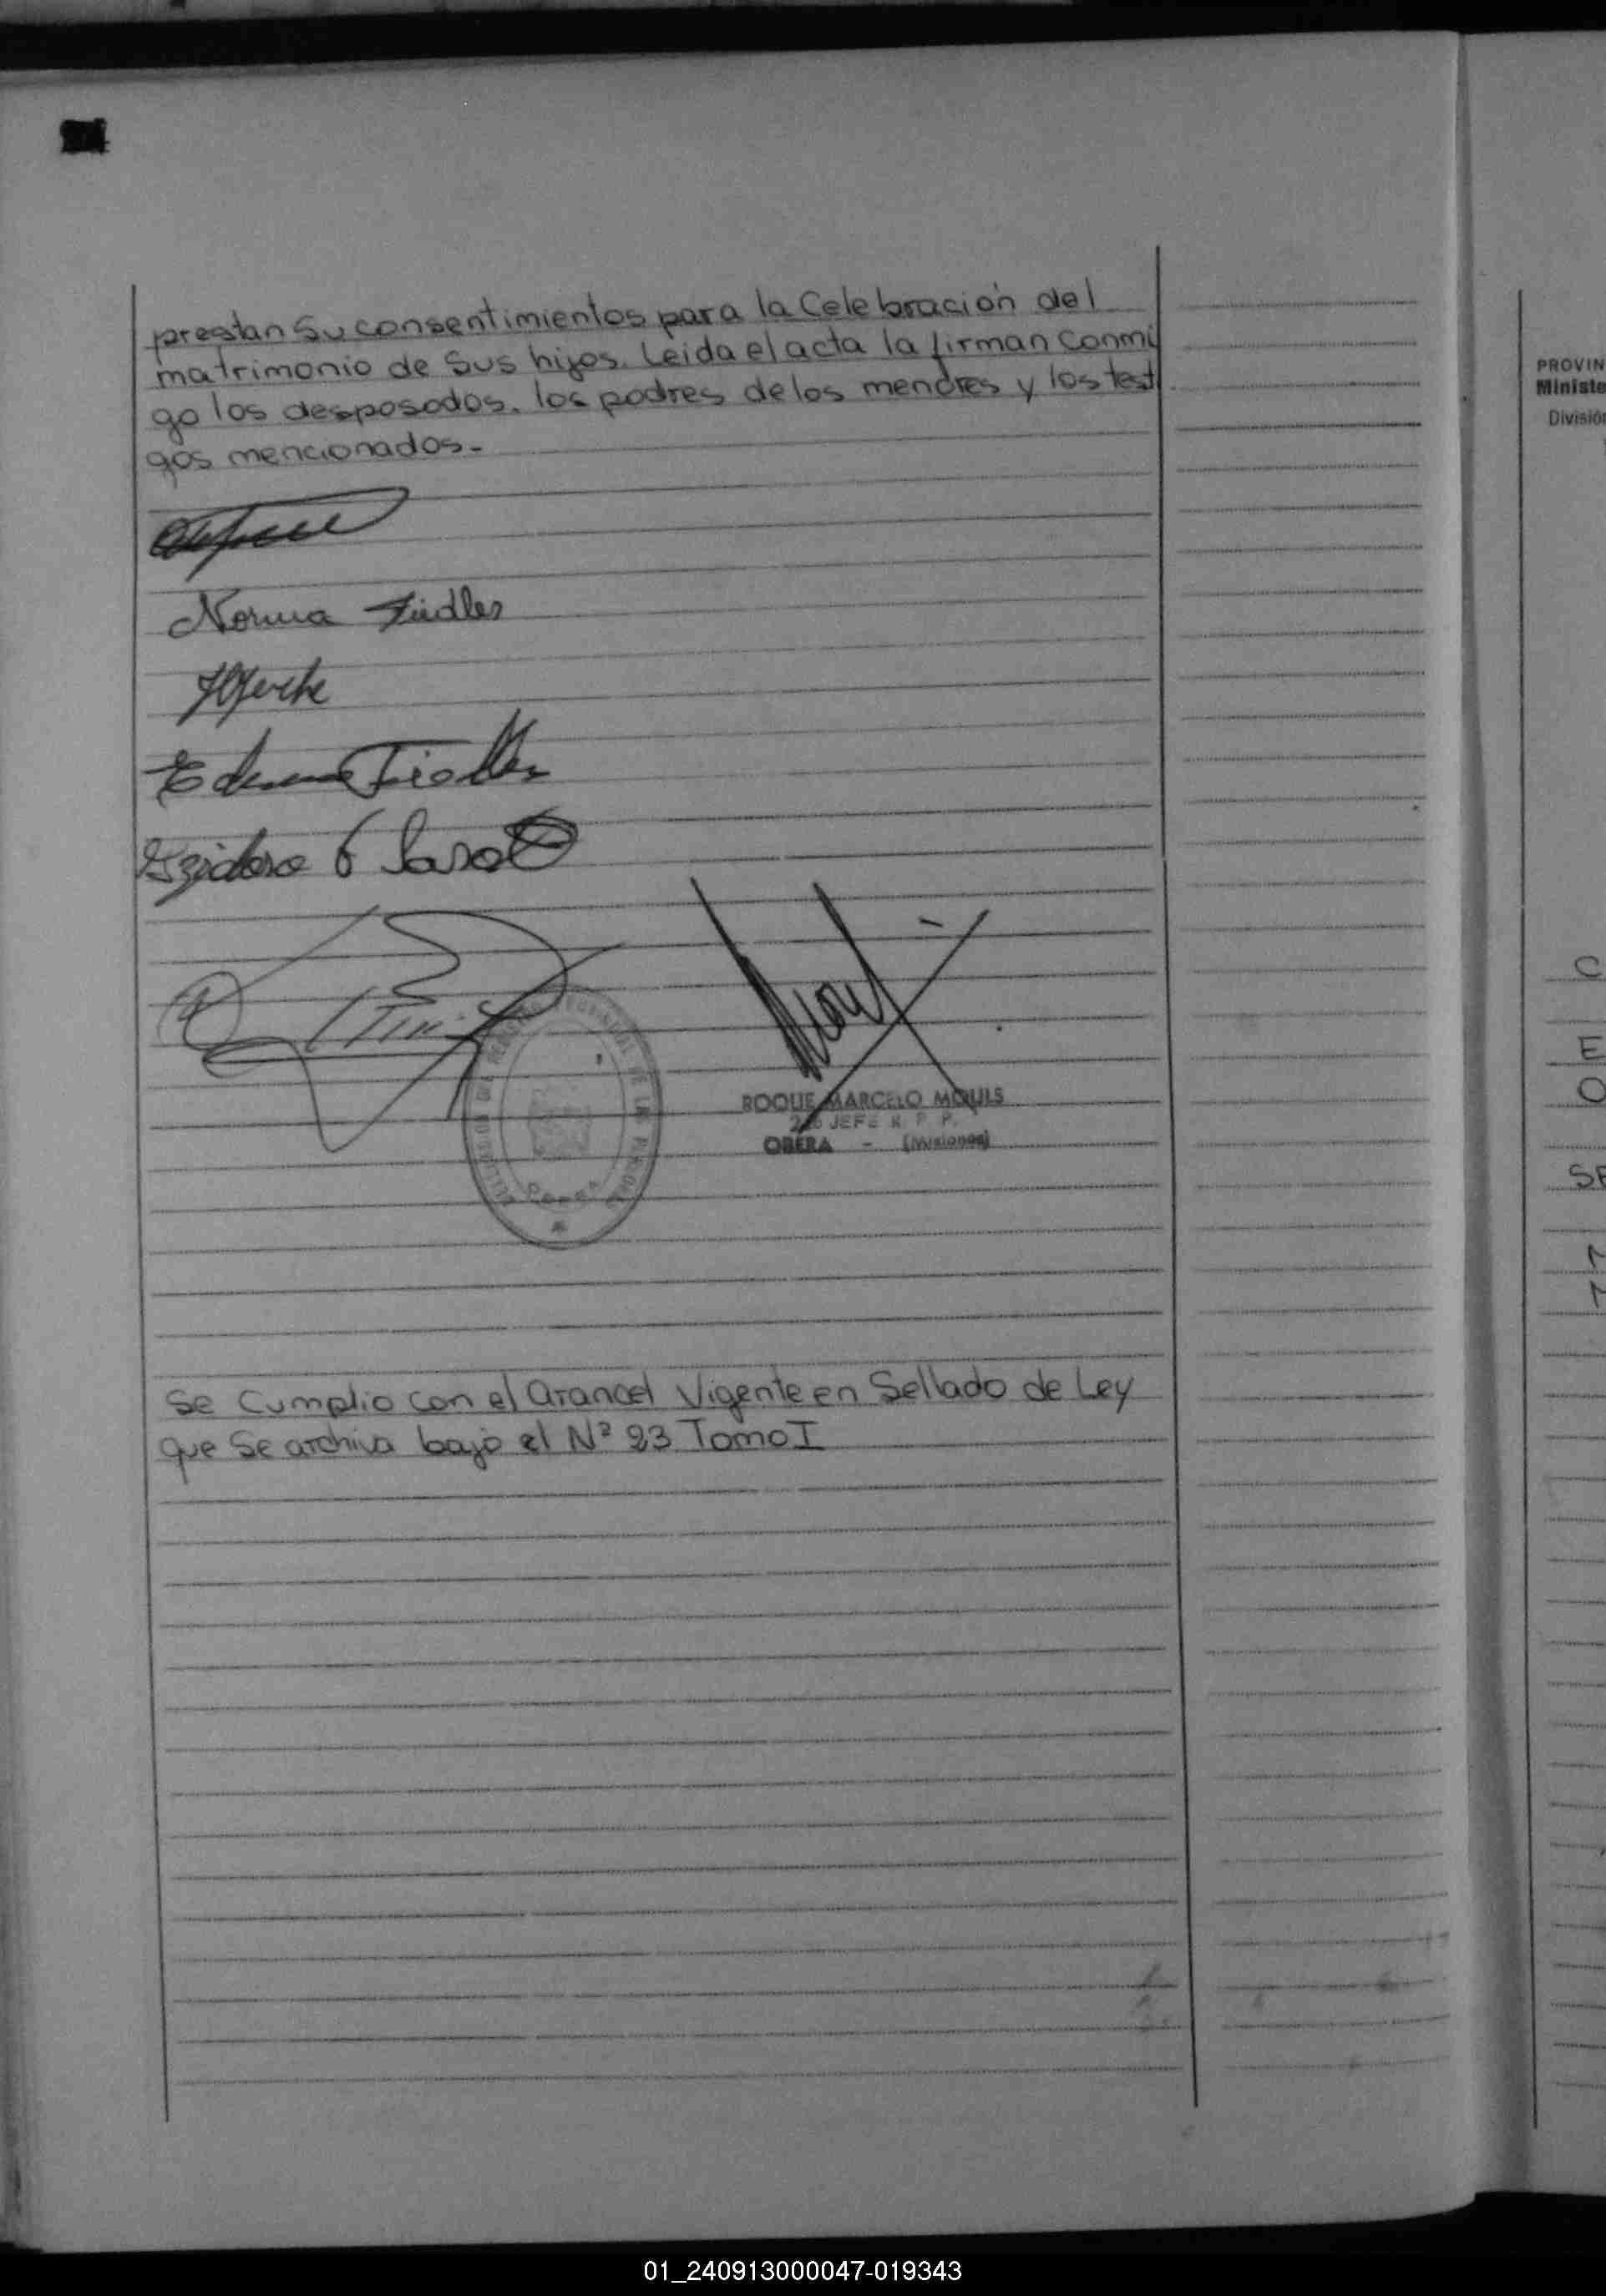 prestan su consentimientos para la Celebración del
matrimonio de sus hijos. Leida el acta la firman conmi
go los desposodos. los podres de los menores y los testi
gos mencionados.-
Norma Fiedler
Fiedler
Izidoro
ROQUE MARCELO MOULS
JEFE R. P. P.
OBERA - (Misiones)
Se Cumplio con el arancel Vigente en Sellado de Ley
que Se archiva bajo el Nº 23 Tomo I
PROVIN
Ministe
División
C
E
O
01_240913000047-019343